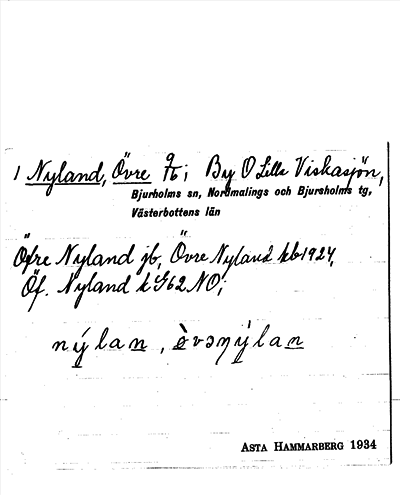 1 Nyland, Övre 9/6; By O Lilla Viskasjön,
Bjurholms sn, Nordmalings och Bjursholms tg,
Västerbottens län
Öfre Nyland jb, Övre Nyland kb 1924,
Öf. Nyland k G62 NO;
nýlan, èvərjỳlan
ASTA HAMMARBERG 1934